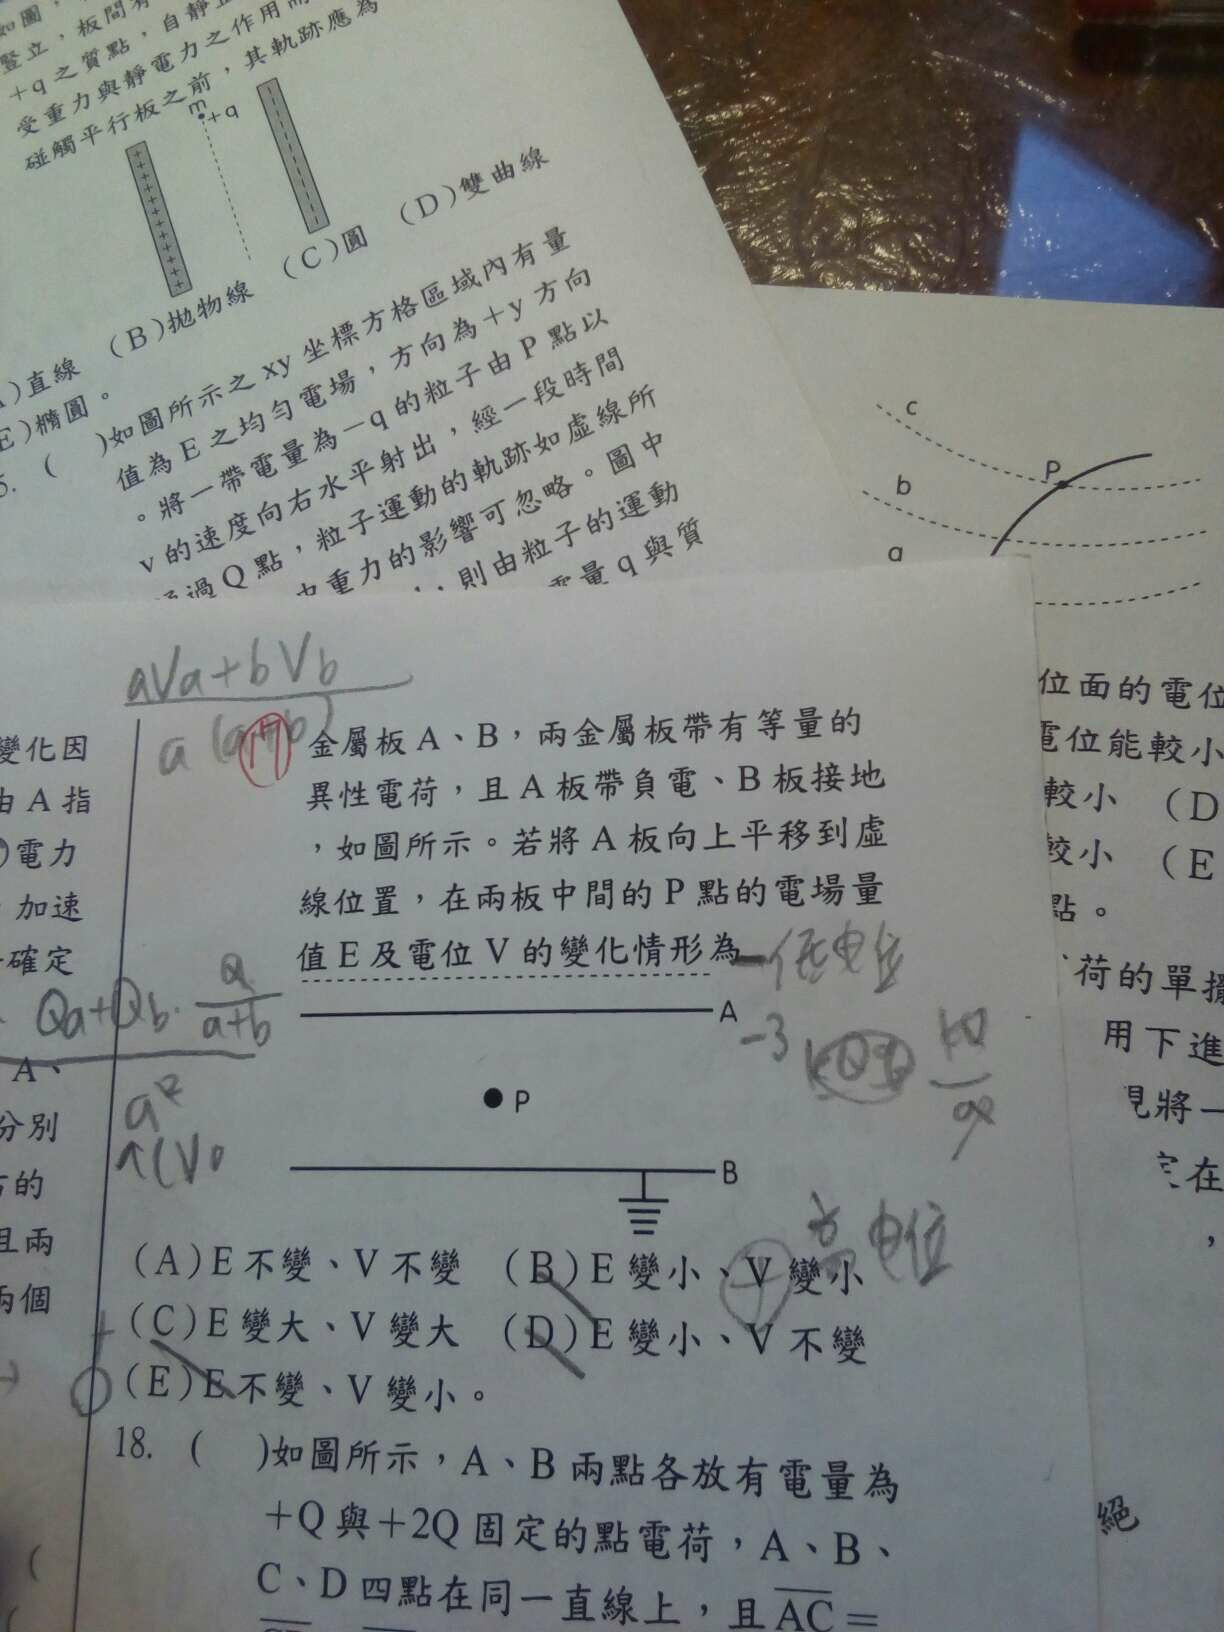 如圖,
豎立,板間有
+q之質點,自靜止
受重力與靜電力之作用而
碰觸平行板之前,其軌跡應為
m
+q
)直線 (B)拋物線 (C)圓 (D)雙曲線
E)橢圓。
5. ( )如圖所示之xy坐標方格區域內有量
值為E之均勻電場,方向為+y方向
。將一帶電量為-q的粒子由P點以
v的速度向右水平射出,經一段時間
通過Q點,粒子運動的軌跡如虛線所
力重力的影響可忽略。圖中
則由粒子的運動
電量q與質
c
P
b
a
位面的電位
電位能較小
較小 (D
較小 (E
點。
荷的單擺
用下進
見將一
定在
,
絕
變化因
由A指
)電力
,加速
確定
A、
分別
右的
且兩
兩個
aVa+bVb
a(a+b)
17
金屬板A、B,兩金屬板帶有等量的
異性電荷,且A板帶負電、B板接地
,如圖所示。若將A板向上平移到虛
線位置,在兩板中間的P點的電場量
值E及電位V的變化情形為
-低電位
Qa+Qb. Q
a+b
a²
A
-3
kQ
P
B
高電位
(A)E不變、V不變 (B)E變小、V變小
(C)E變大、V變大 (D)E變小、V不變
(E)E不變、V變小。
18. ( )如圖所示,A、B兩點各放有電量為
+Q與+2Q固定的點電荷,A、B、
C、D四點在同一直線上,且AC=